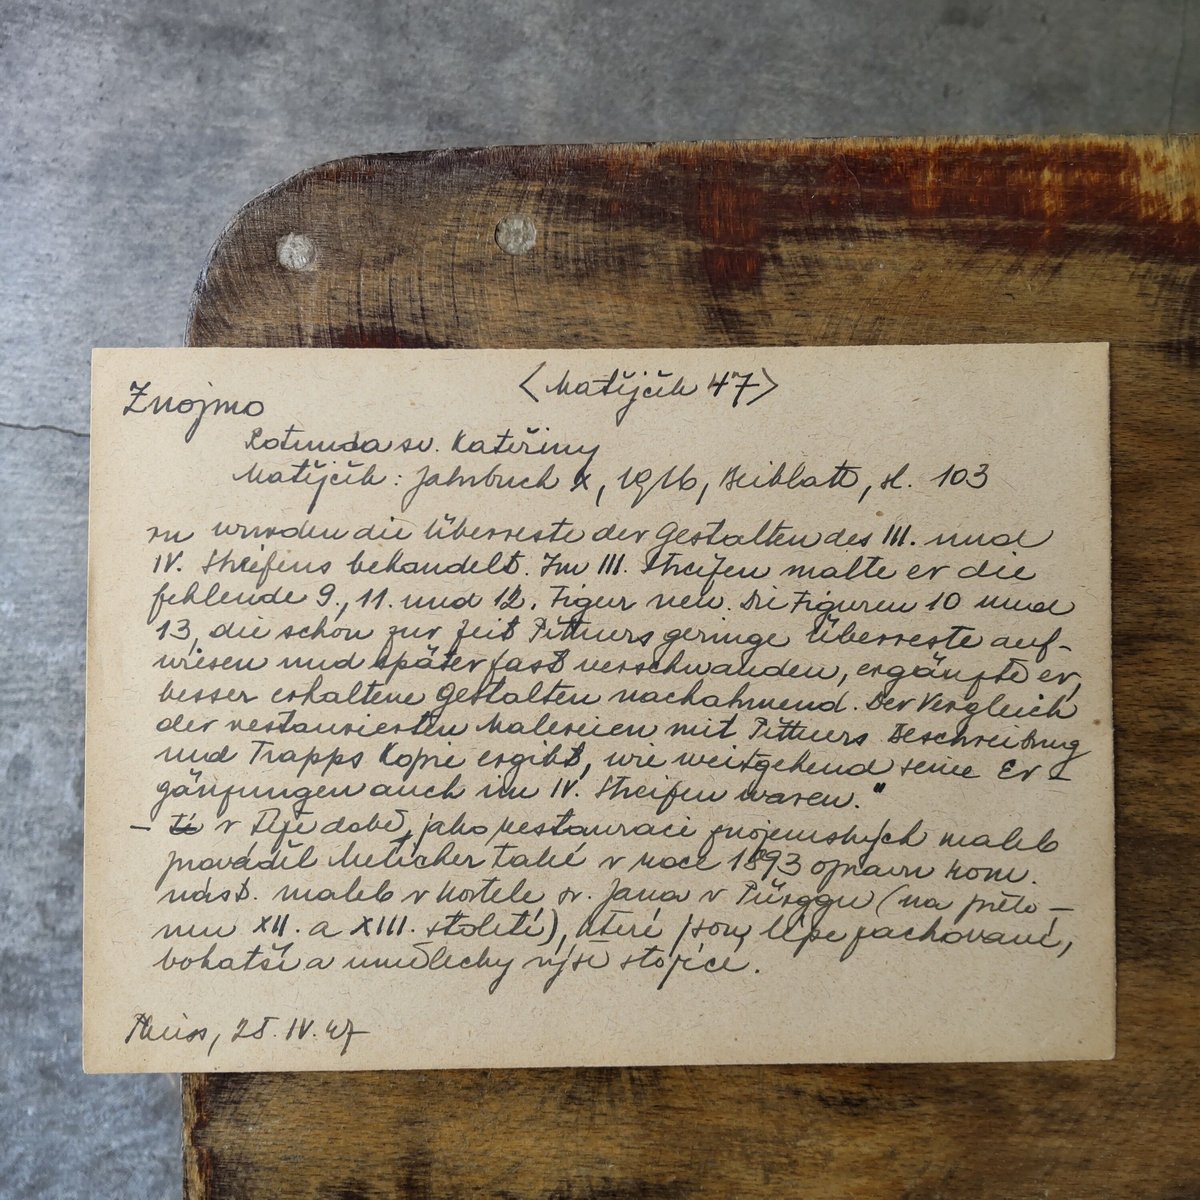 Znojmo
<Matějček 47>
Rotunda sv. Kateřiny
Matějček: Jahrbuch X, 1916, Beiblatt, sl. 103
ru wurden die Überreste der Gestalten des III. und
IV. Streifens behandelt. Im III. Streifen malte er die
fehlende 9., 11. und 12. Figur neu. Die Figuren 10 und
13, die schon zur Zeit Pittners geringe Überreste auf-
wiesen und später fast verschwanden, ergänzte er,
besser erhaltene Gestalten nachahmend. Der Vergleich
der restaurierten Malereien mit Pittners Beschreibung
und Trapps Kopie ergibt, wie weitgehend seine Er-
gänzungen auch im IV. Streifen waren."
- v téže době, jako restauraci znojemských maleb
prováděl Melicher také v roce 1893 opravu rom.
nást. maleb v kostele sv. Jana v Pürggu (na přelo-
mu XII. a XIII. století), které jsou lépe zachované,
bohatší a umělecky výše stojící.
25. IV. 47